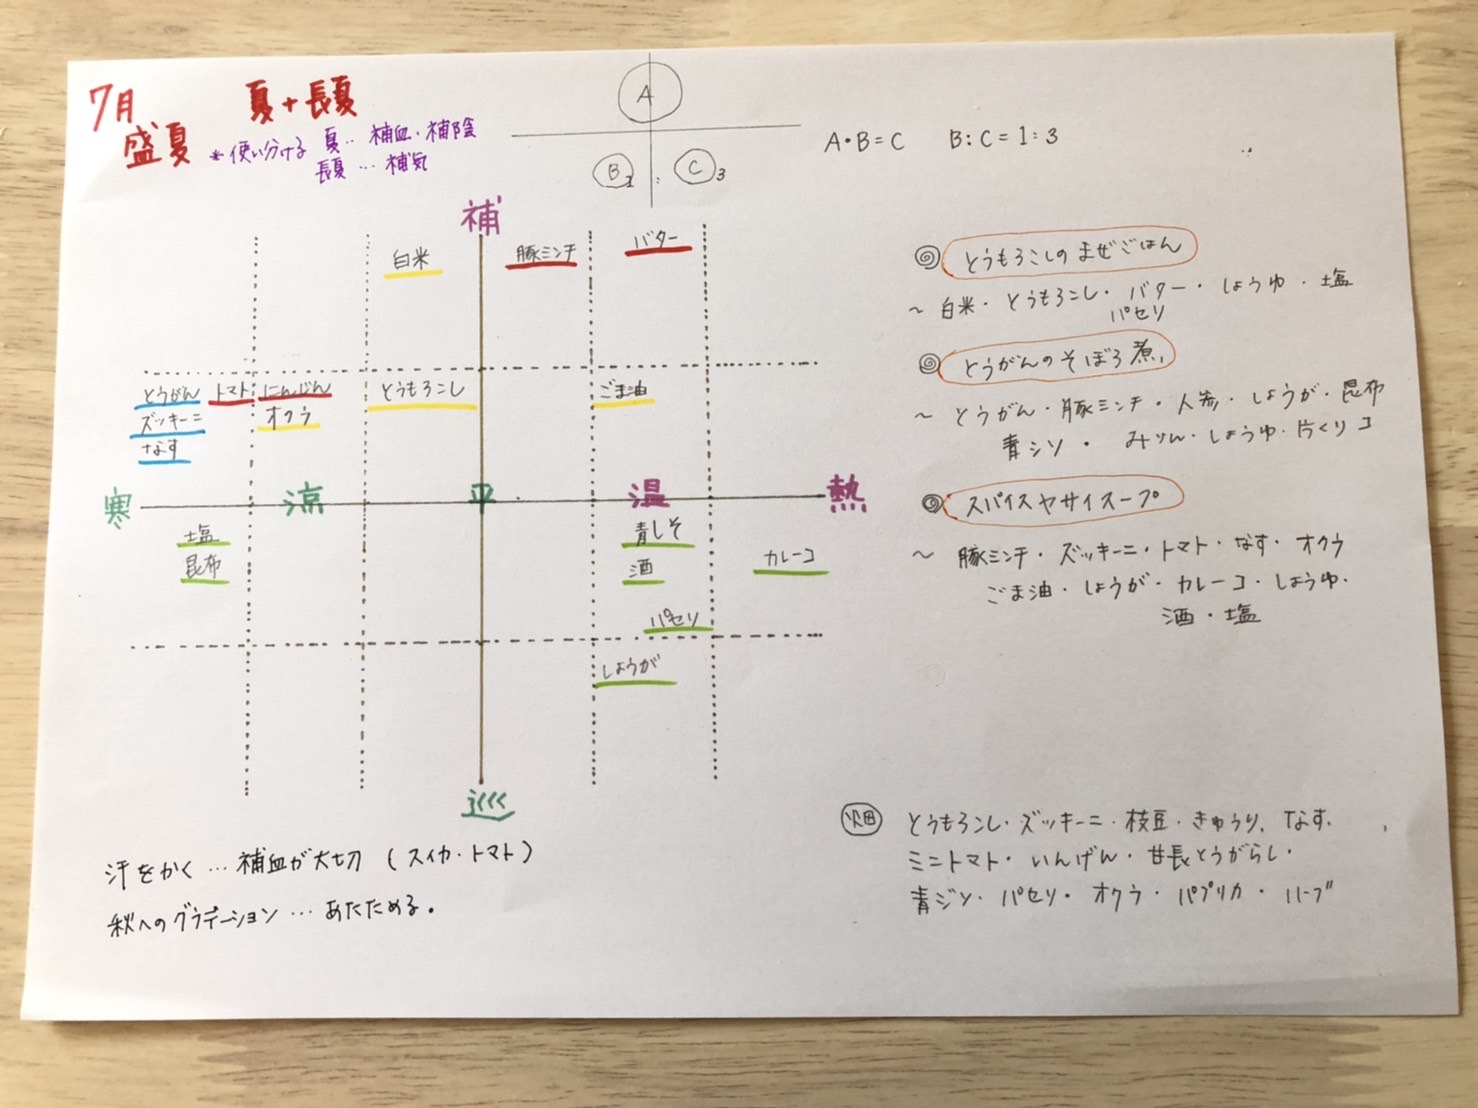 7月 夏+長夏
盛夏 *使い分ける 夏… 補血・補陰
長夏 … 補気
A
B1 : C3
A・B=C B:C=1:3
補
白米 豚ミンチ バター
とうがん トマト にんじん とうもろこし ごま油
ズッキーニ オクラ
なす
寒 涼 平 温 熱
塩 青しそ
昆布 酒 カレーコ
パセリ
しょうが
汗をかく … 補血が大切 (スイカ・トマト)
秋へのグラデーション … あたためる。
◎ とうもろこしのまぜごはん
~ 白米・とうもろこし・バター・しょうゆ・塩
パセリ
◎ とうがんのそぼろ煮
~ とうがん・豚ミンチ・人参・しょうが・昆布
青シソ・ みりん・しょうゆ・片くりコ
◎ スパイスヤサイスープ
~ 豚ミンチ・ズッキーニ・トマト・なす・オクラ
ごま油・しょうが・カレーコ・しょうゆ・
酒・塩
とうもろこし・ズッキーニ・枝豆・きゅうり、なす、
ミニトマト・いんげん・甘長とうがらし・
青ジソ・パセリ・オクラ・パプリカ・ハーブ